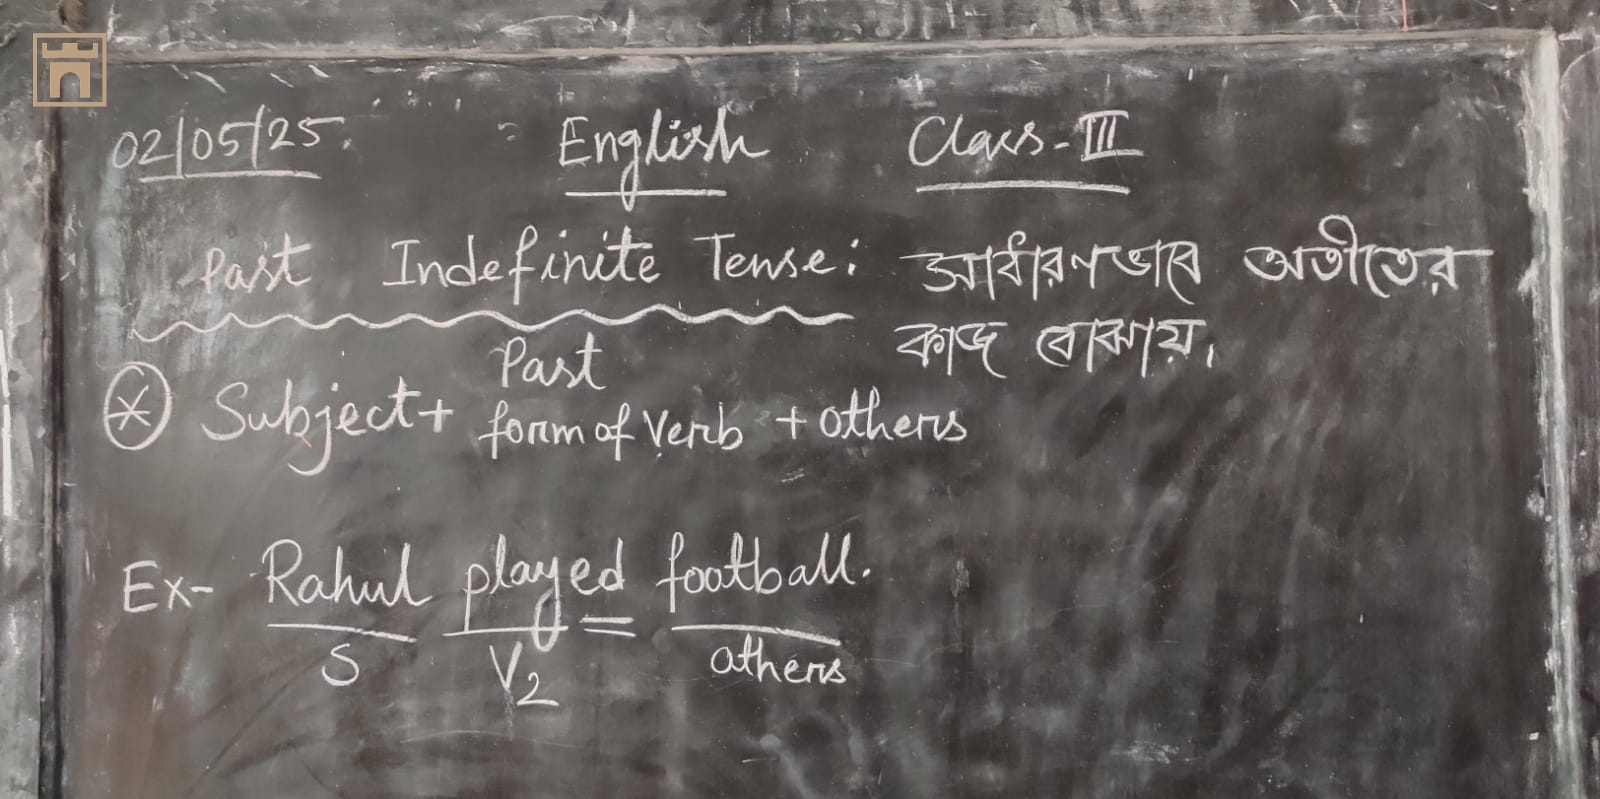 02/05/25. English Class-III
Past Indefinite Tense: সাধারণভাবে অতীতের
কাজ বোঝায়।
Past
* Subject + form of Verb + others
Ex- Rahul played football.
S V2 others